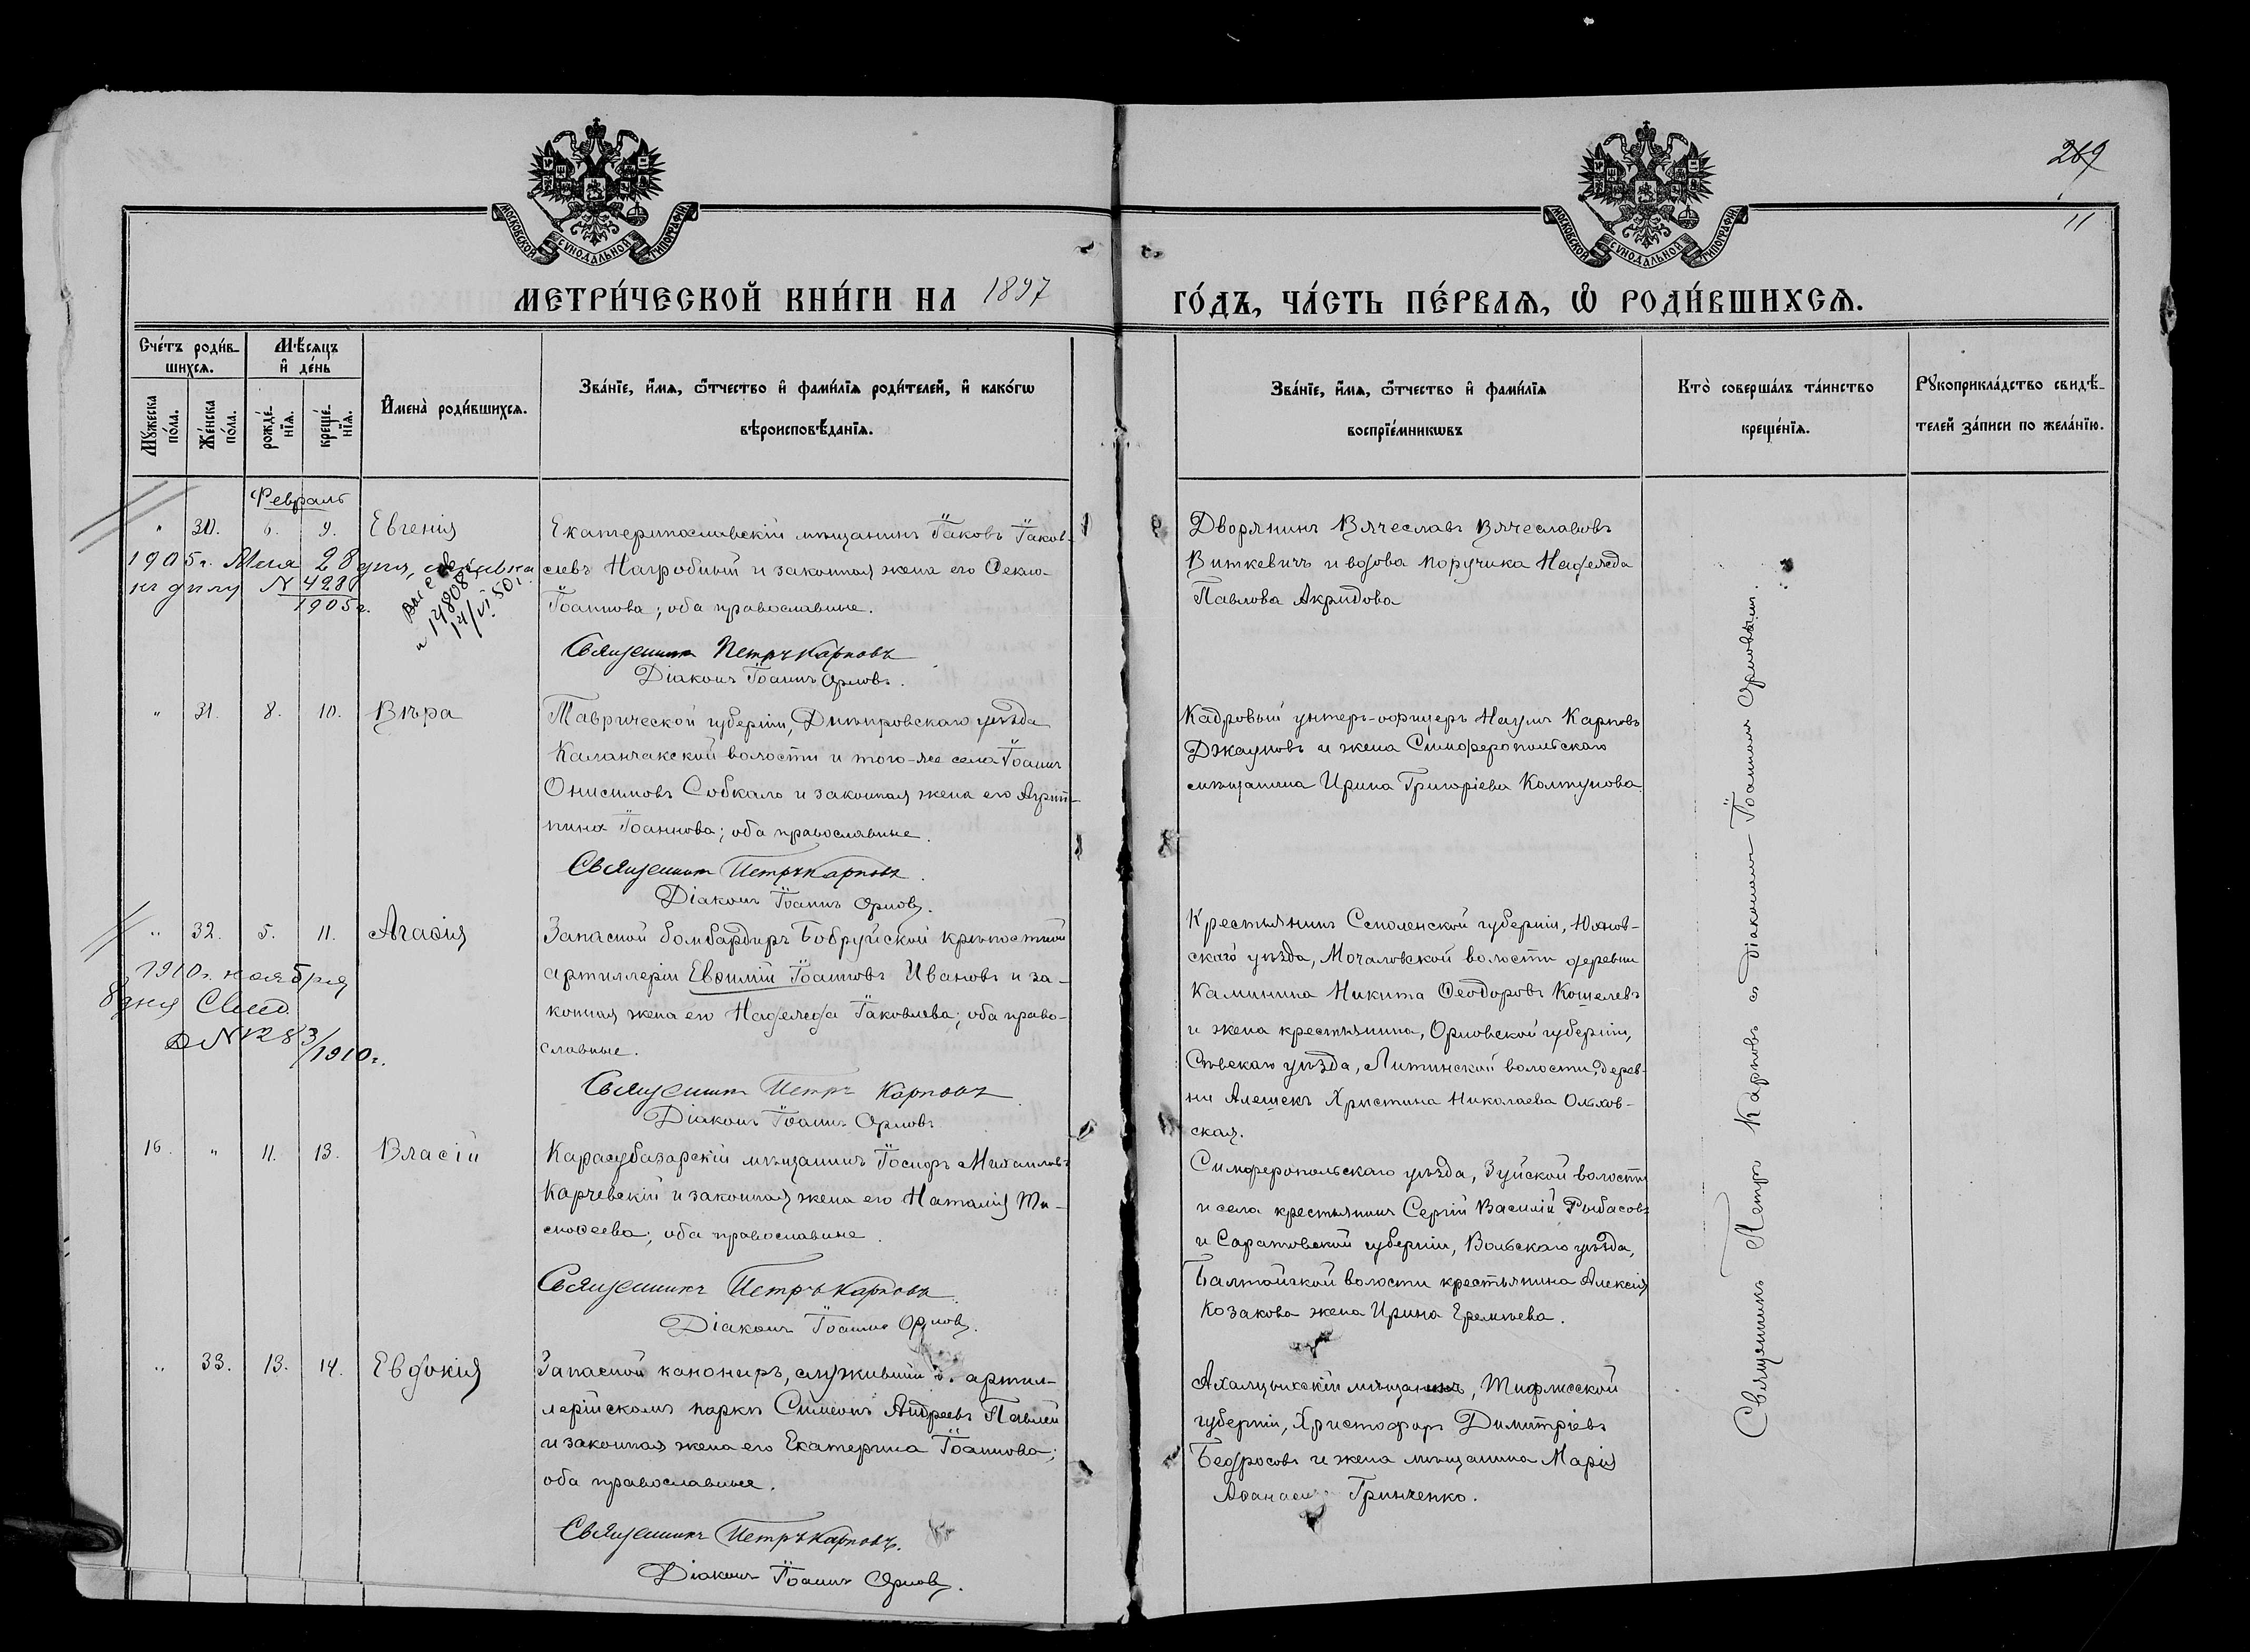 269
11
МОСКОВСКОЙ СѴНОДАЛЬНОЙ ТИПОГРАФІИ
МОСКОВСКОЙ СѴНОДАЛЬНОЙ ТИПОГРАФІИ
МЕТРИ́ЧЕСКОЙ КНИ́ГИ НА 1897 ГО́ДЪ, ЧА́СТЬ ПЕ́РВАѦ, Ѡ҆ РОДИ́ВШИХСѦ.
Сче́тъ роди́в-
шихсѧ.
Мѣ́сѧцъ
и҆ де́нь
Мꙋ́жеска
по́ла.
Же́нска
по́ла.
рожде́-
нїѧ.
креще́-
нїѧ.
И҆мена̀ роди́вшихсѧ.
Зва́нїе, и҆́мѧ, ѻ҆́тчество и҆ фами́лїѧ роди́телей, и҆ како́гѡ
вѣроисповѣ́данїѧ.
Зва́нїе, и҆́мѧ, ѻ҆́тчество и҆ фами́лїѧ
воспрїе́мникѡвъ
Кто̀ соверша́лъ та́инство
креще́нїѧ.
Рꙋкоприкла́дство свидѣ́-
телей за́писи по жела́нїю.
Февраль
" 30. 6. 9. Евгенія
Екатеринославскій мѣщанинъ Іаковъ Іаков-
левъ Нагробный и законная жена его Ѳекла
Іоаннова; оба православные.
Священникъ Петръ Карповъ
Діаконъ Іоаннъ Орловъ.
Дворянинъ Вячеславъ Вячеславовъ
Виткевичъ и вдова поручика Надежда
Павлова Акридова
1905г. Мая 28 дня,
къ дѣлу N 428
1905г.
14808
" 31. 8. 10. Вѣра
Таврической губерніи, Днѣпровскаго уѣзда
Каланчакской волости и того-же села Іоаннъ
Онисимовъ Собкало и законная жена его Агрип-
пина Іоаннова; оба православные.
Священникъ Петръ Карповъ.
Діаконъ Іоаннъ Орловъ.
Кадровый унтеръ-офицеръ Наумъ Карповъ
Джауновъ и жена Симферопольскаго
мѣщанина Ирина Григоріева Колтунова
" 32. 5. 11. Агаѳія
Запасной бомбардиръ Бобруйской крѣпостной
артиллеріи Евѳимій Іоанновъ Ивановъ и за-
конная жена его Надежда Іаковлева; оба право-
славные.
Священникъ Петръ Карповъ
Діаконъ Іоаннъ Орловъ
Крестьянинъ Смоленской губерніи, Юхнов-
скаго уѣзда, Мочаловской волости деревни
Каминина Никита Ѳеодоровъ Кошелевъ
и жена крестьянина, Орловской губерніи,
Сѣвскаго уѣзда, Литинской волости, дерев-
ни Алешекъ Христина Николаева Ольхов-
ская.
1910г. ноября
8 дня
N 1283/1910г.
16. " 11. 13. Власій
Карасубазарскій мѣщанинъ Іосифъ Михаиловъ
Карчевскій и законная жена его Наталія Ти-
моѳеева; оба православные.
Священникъ Петръ Карповъ
Діаконъ Іоаннъ Орловъ.
Симферопольскаго уѣзда, Зуйской волости
и села крестьянинъ Сергій Василій Рыбасовъ
и Саратовской губерніи, Вольскаго уѣзда,
Балтайской волости крестьянина Алексія
Козакова жена Ирина Еремѣева.
" 33. 13. 14. Евдокія
Запасной канониръ, служившій в. артил-
лерійскомъ паркѣ Симеонъ Андреевъ Павлей
и законная жена его Екатерина Іоаннова;
оба православные.
Священникъ Петръ Карповъ.
Діаконъ Іоаннъ Орловъ.
Ахалцыхскій мѣщанинъ, Тифлисской
губерніи, Христофоръ Димитріевъ
Бедросовъ и жена мѣщанина Марія
Гринченко.
Священникъ Петръ Карповъ съ Діакономъ Іоанномъ Орловымъ.